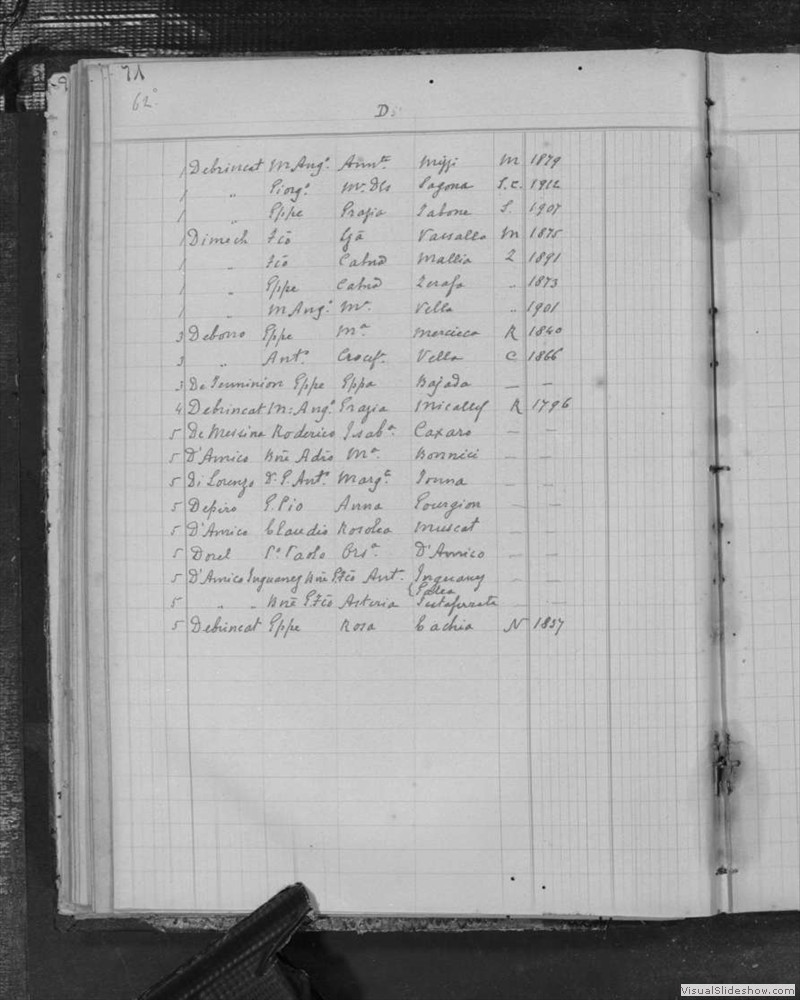 71
62º
D
1 Debrincat M Angº Annta Mizzi M 1879
1 " Giorgº Mª Dls Pagona S.C. 1912
1 " Gppe Grazia Sabone S. 1907
1 Dimech Fcõ Gã Vassallo M 1875
1 " Fcõ Catnã Mallia Z 1891
1 " Gppe Catnã Zerafa " 1873
1 " M Angº Mª Vella " 1901
3 Debono Gppe Mª Mercieca R 1840
3 " Antº Crocefª Vella C 1866
3 De Gppe Gppa Bajada — —
4 Debrincat M: Angº Grazia Micallef R 1796
5 De Messina Roderico Isabª Caxaro — —
5 D'Amico Bnẽ Adrõ Mª Bonnici — —
5 Di Lorenzo Antº Margª — —
5 Depiro G. Pio Anna Gourgion — —
5 D'Amico Claudio Rosolea Muscat — —
5 Dorel Pº Paolo Orsª D'Amico — —
5 D'Amico Inguanez Bnẽ Fcõ Antª Inguanez — —
5 " " Bnẽ Fcõ Asteria Testaferrata — —
5 Debrincat Gppe Rosa Cachia N 1837
VisualSlideshow.com